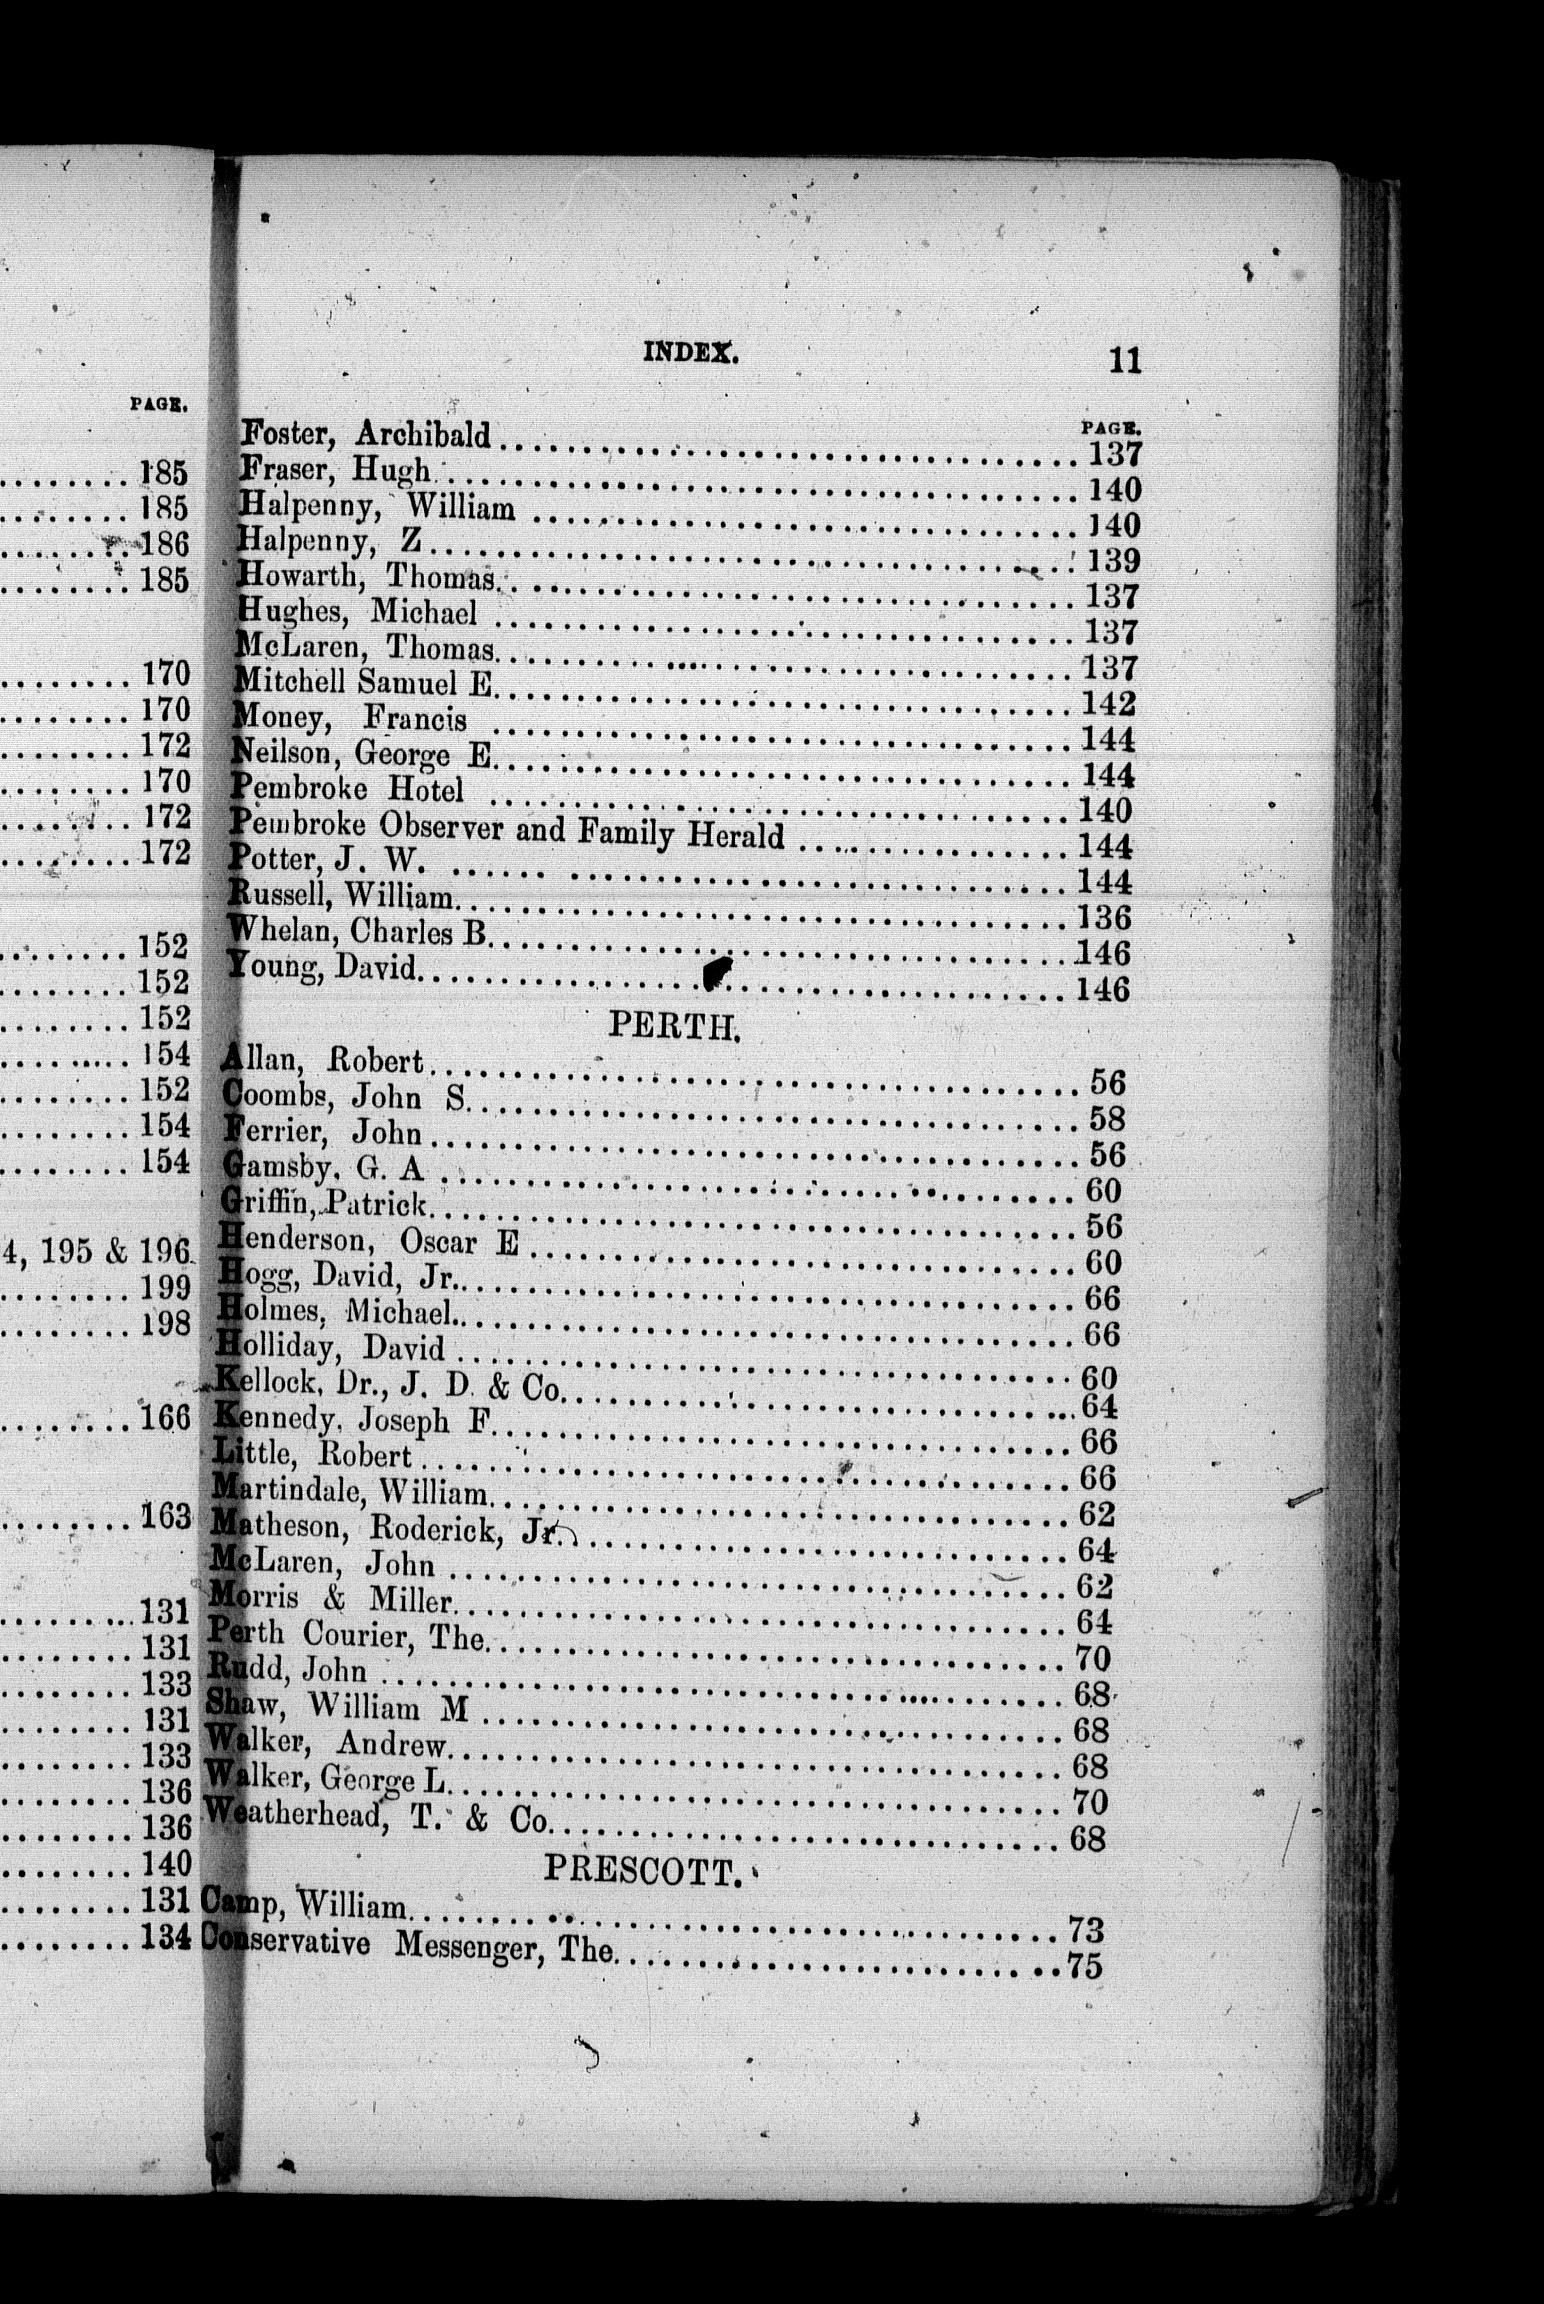 PAGE.
........185
........185
........186
........185
........170
........170
........172
........170
........172
........172
........152
........152
........152
........154
........152
........154
........154
4, 195 & 196
........199
........198
........166
........163
........131
........131
........133
........131
........133
........136
........136
........140
........131
........134
INDEX. 11
PAGE.
Foster, Archibald........137
Fraser, Hugh........140
Halpenny, William........140
Halpenny, Z........139
Howarth, Thomas........137
Hughes, Michael........137
McLaren, Thomas........137
Mitchell Samuel E........142
Money, Francis........144
Neilson, George E........144
Pembroke Hotel........140
Pembroke Observer and Family Herald........144
Potter, J. W.........144
Russell, William........136
Whelan, Charles B........146
Young, David........146
PERTH.
Allan, Robert........56
Coombs, John S........58
Ferrier, John........56
Gamsby, G. A........60
Griffin, Patrick........56
Henderson, Oscar E........60
Hogg, David, Jr.........66
Holmes, Michael........66
Holliday, David........60
Kellock, Dr., J. D. & Co........64
Kennedy, Joseph F........66
Little, Robert........66
Martindale, William........62
Matheson, Roderick, Jr.........64
McLaren, John........62
Morris & Miller........64
Perth Courier, The........70
Rudd, John........68
Shaw, William M........68
Walker, Andrew........68
Walker, George L........70
Weatherhead, T. & Co........68
PRESCOTT.
Camp, William........73
Conservative Messenger, The........75